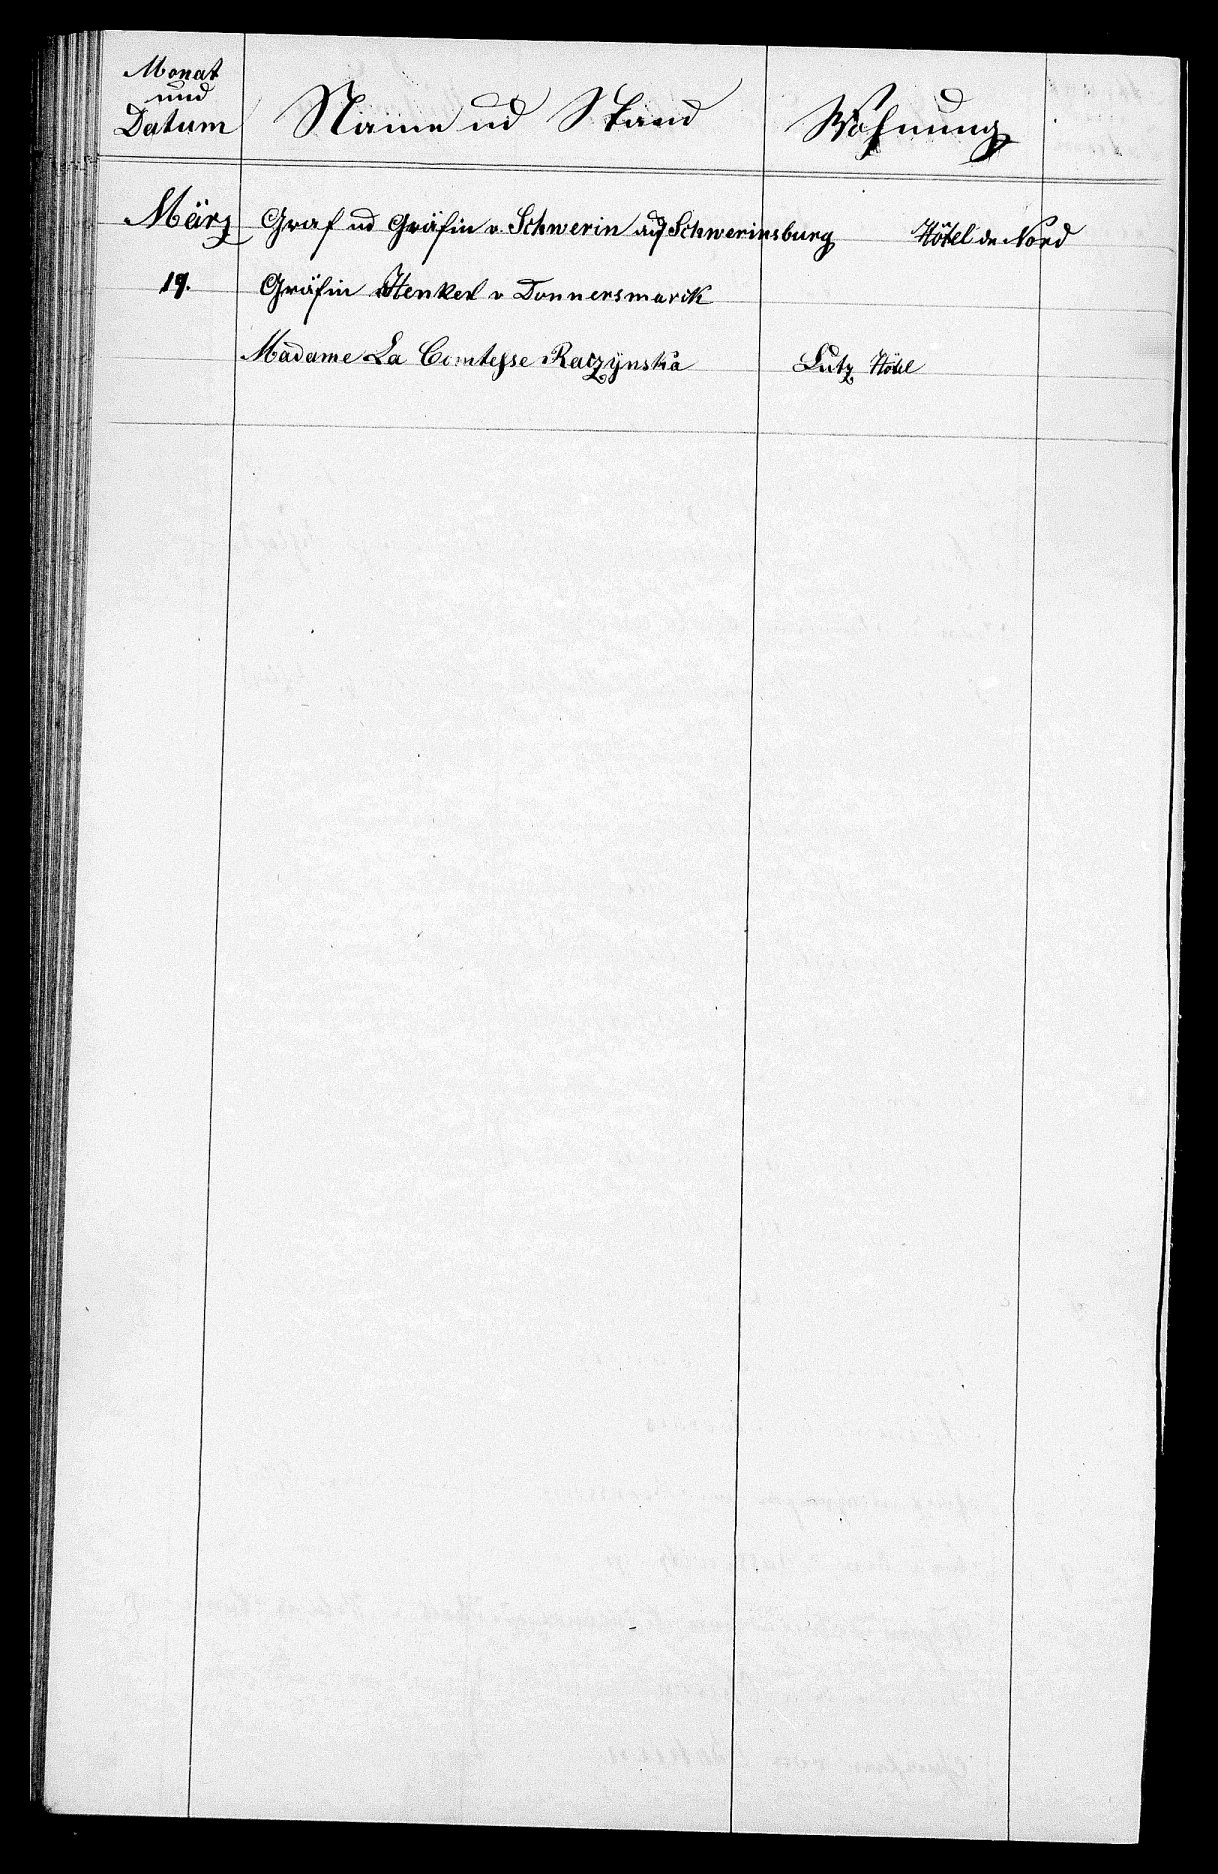 Monat
und
Datum
Name ud Stand
Wohnung
März Graf ud Gräfin v. Schwerin auf Schwerinsburg Hôtel de Nord
19. Gräfin Henkel v Donnersmarck
Madame La Comtesse Raczÿnska Lutz Hôtel